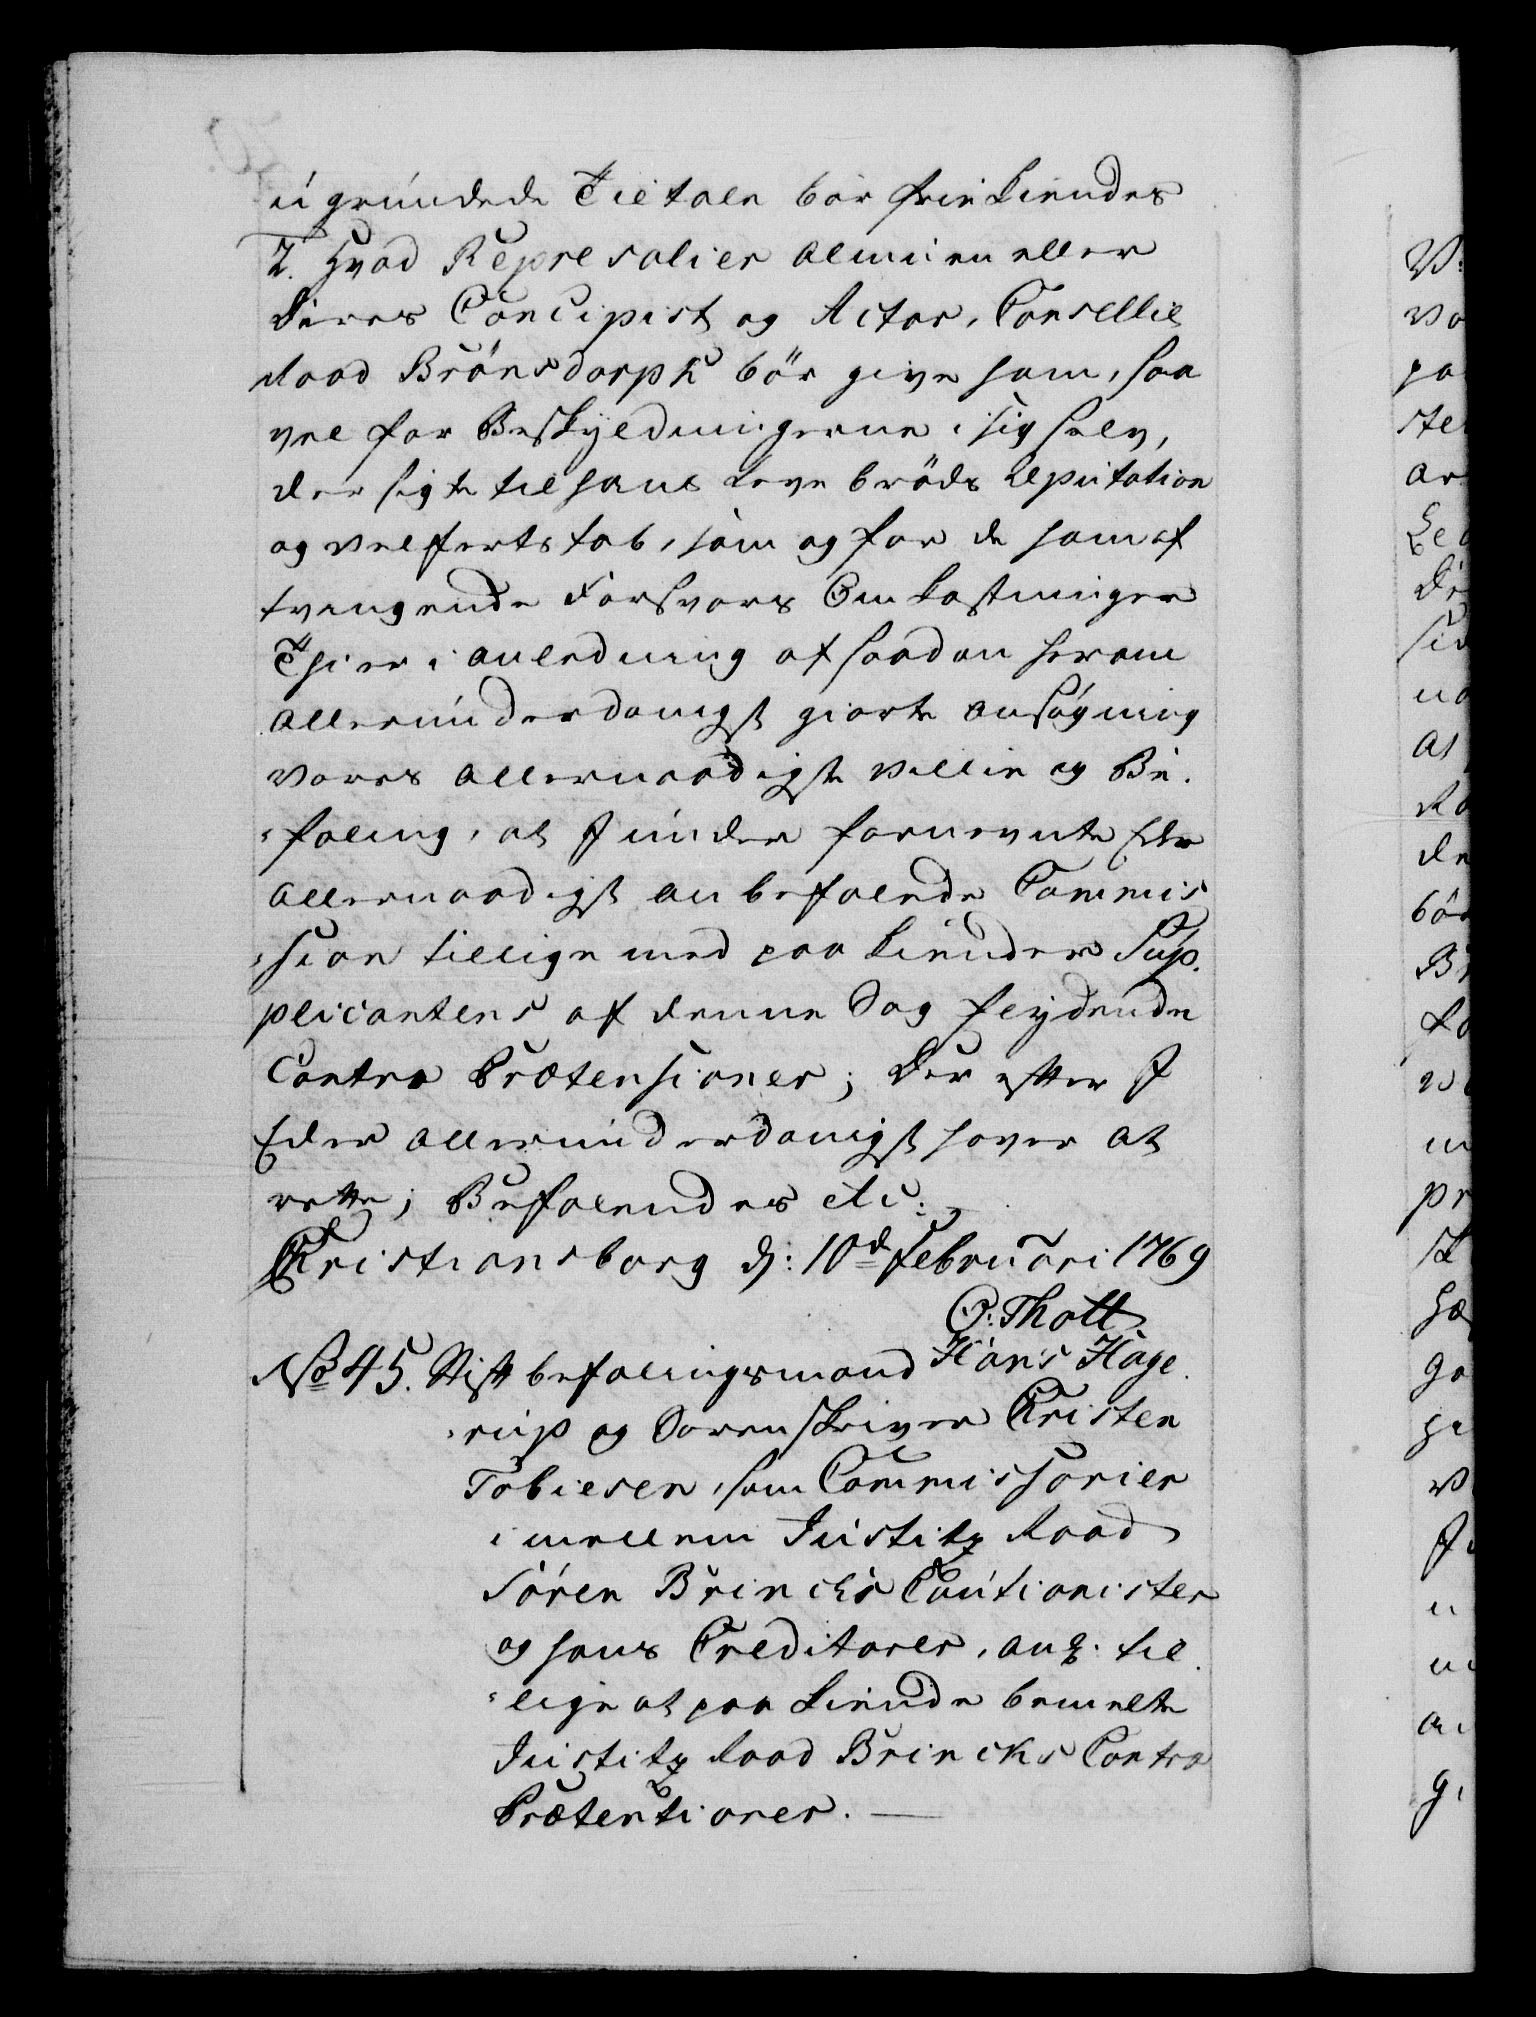 ugrundede Tiltale bør frie kiendes
2. Hvad Represalier Almuen eller
Deres Concipist og Actor, Cancellie
Raad Brönsdorph bör give ham, saa
vel for Beskyldningerne i sig selv,
der sigte til hans Levebröds Reputation
og Velferts tab, som og for de ham af
tvungende Forsvars Omkostninger
Thi er i anledning af saadan herom
allerunderdanigst giorte ansøgning
Vores allernaadigste Villie og Be-
faling, at I under fornevnte Eder
allernaadigst anbefalede Commis
sion tillige med paakiender Sup-
plicantens af denne Sag flydende
Contra Prætensioner; Der efter I
Eder allerunderdanigst haver at
rette; Befalendes etc:
Christiansborg d: 10d Februari 1769
O: Thott
No 45. Stiftbefalingsmand Hans Hage
rup og Sorenskriver Christen
Tobiesen, som Commissarier
imellem Justitz Raad
Sören Brincks Cautionister
og hans Creditorer, ang. til
lige at paakiende bemelte
Justitz Raad Brincks Contra
Prætentioner.